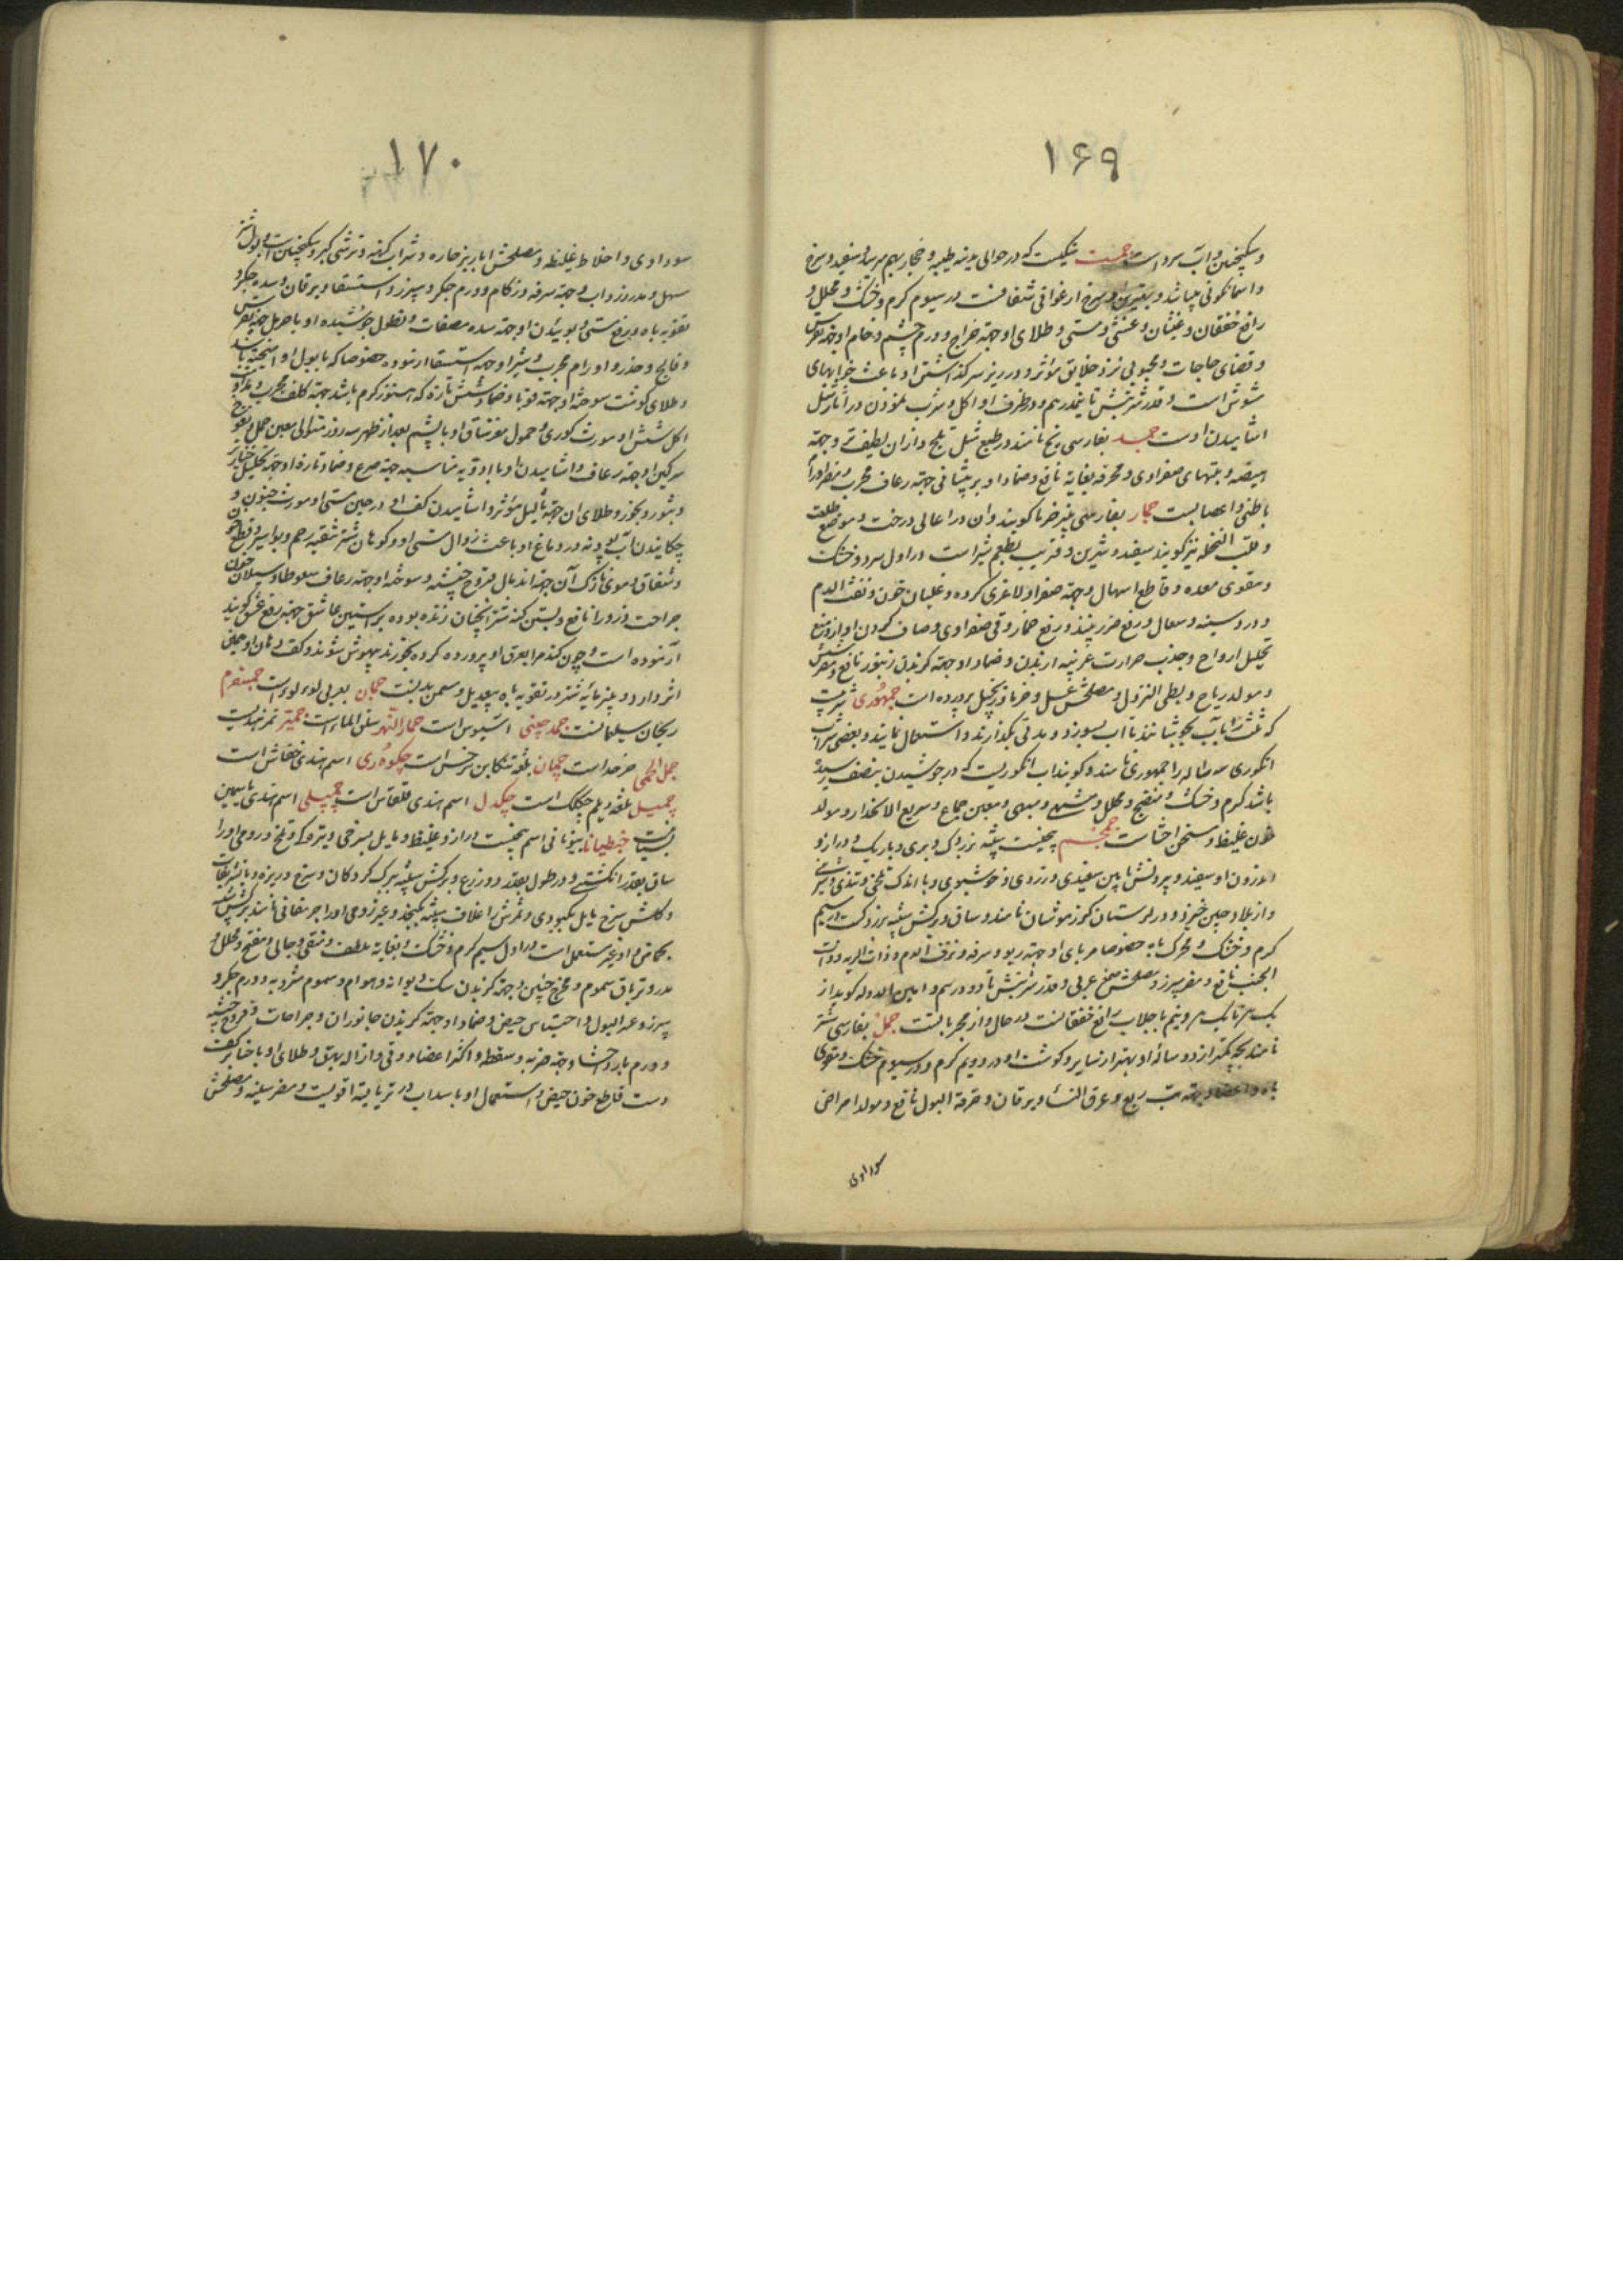 ۱۶۹
وسکنجبین و آب سرد است جمست سنگیست که در حوالی مدینه طیبه و حجاز بهم میرسد و سفید و سرخ
و اسمانکونی میباشد و بهترین او سرخ ارغوانی شفافست در سیوم کرم و خشک و محلل و
رافع خفقان و غثیان و غشی و مستی و طلای او جهة خراج و ورم چشم و خام او جهة نقرس
و قضای حاجات و محبوبی نزد خلایق مؤثر و در زیر سر کذاشتن او باعث خوابهای
شوش است و قدر شربتش تا نیمدرهم و در ظرف او اکل و شرب نمودن در آثار مثل
اشامیدن اوست جمد بفارسی یخ نامند در طبع مثل ثلج و از ان لطیف تر و جهة
هیضه و تبهای صفراوی و محرقه بغایة نافع و ضماد او بر پیشانی جهة رعاف مجرب و مضر اورام
باطنی و اعصابست جمار بفارسی پنیر خرما کویند و ان در اعالی درخت و موضع طلعت
و قلب النخله نیز کویند سفید و شیرین و قریب بطعم شیر است در اول سرد و خشک
و مقوی معده و قاطع اسهال و جهة صفرا و لاغری کرده و غلیان خون و نفث الدم
و درد سینه و سعال و رفع ضرر نبیذ و رفع خمار و قی صفراوی و صاف کردن اواز و منع
تحلیل ارواح و جذب حرارت غریبه از بدن و ضماد او جهة کزیدن زنبور نافع و مضر شش
و مولد ریاح و بطی النزول و مصلحش عسل و خرما و زنجبیل پرورده است جمهوری شربیست
که مثلث را با آب بجوشانند تا اب بسوزد و مدتی بکذارند و استعمال نمایند و بعضی شراب
انکوری سه ساله را جمهوری نامند و کویند اب انکوریست که در جوشیدن بنصف رسیده
باشد کرم و خشک و منضج و محلل و مشهی و مبهی و معین جماع و سریع الانحدار و مولد
خون غلیظ و مسخن احشاست جمجم بیخیست بیشه بزردک و بری و باریک و دراز و
اندرون او سفید و بیرونش مابین سفیدی و زردی و خوشبوی و با اندک تلخی و تندی و شیرینی
و از بلاد چین خیزد و در لرستان کوزموشان نامند و ساق و برکش شبیه بزردکست در سیم
کرم و خشک و محرک باه خصوصا مربای او و جهة ربو و سرفه و نزف الدم و ذات الریه و ذات
الجنب نافع و مضر سپرز و مصلحش صمغ عربی و قدر شربتش تا دو درهم و امین الدوله کوید از
یکدرهم تا یکدرهم و نیم با جلاب رافع خفقانست در حال و از مجرباتست جمل بفارسی شتر
نامند بچه یکتر از دو ساله او بهتر از سایر و کوشت او در دویم کرم و در سیوم خشک و مقوی
باه و اعضا و جهة تب ربع و عرق النسا و یرقان و حرقة البول نافع و مولد امراض
سوداوی
۱۷۰
سوداوی و اخلاط غلیظه و مصلحش ابازیر حاره و شراب کهنه و ترشی کبر و سکنجبین است و بول شتر
سهل و مدر زرداب و جهة سرفه و زکام و ورم جکر و سپرز و استسقا و یرقان و سده جکر و
تقویه باه و رفع مستی و بوئیدن او جهة سده مصفات و نطول جوشیده او با حرمل جهة نقرس
و فالج و خدر و اورام مجرب و شیر او جهة استسقا ازموده خصوصا که با بول او امیخته باشد
و طلای کوشت سوخته او جهة قوبا و ضماد شش تازه که هنوز کرم باشد جهة کلف مجرب و مداومت
اکل شش او مورث کوری و حمول مغز ساق او با پشم بعد از طهر سه روز متوالی معین حمل و بخور
سرکین او جهة رعاف و اشامیدن او با ادویه مناسبه جهة صرع و ضماد تازه او جهة تحلیل خنازیر
و بثور و بخور و طلای ان جهة ثآلیل مؤثر و اشامیدن کف او در حین مستی او مورث جنون و
چکانیدن آب پودنه در دماغ او باعث زوال مستی او و کوهان شتر شقیه رحم و بواسیر و قطع خون
و شقاق و موی نازک آن جهة اندمال قروح خبیثه و سوخته او جهة رعاف سعوطا و سیلان خون
جراحت ذرورا نافع و بستن کنه شتر انچنان زنده بوده بر استین عاشق جهة رفع عشق کویند
آزموده است و چون کندم را بعرق او پرورده کرده بخورند بیهوش شوند و کف دهان او همین
اثر دارد و پنیر مائیه شتر در تقویه باه بیعدیل و مسمن بدنست جمان بعربی لؤلؤ است جمسفرم
ریحان سلیمانست جمد چینی اسیوس است جمار النهر سلق الماء است جمیز تمر هندیست
جمل الحی خرخد است جمان بلغة تنکابن سرخس است چمکوۀری اسم هندی خفاش است
چمبیل بلغة دیلم چکک است چمکدل اسم هندی قلقاس است چمبیلی اسم هندی یاسمین
بستانیست جنطیانا بیونانی اسم بیخیست دراز و غلیظ و مایل بسرخی و تیره کی و تلخ و رومی او را
ساق بقدر انکشتی و در طول بقدر دو زرع و برکش شبیه ببرک کردکان و سرخ و ریزه و با تشریفات
و کلش سرخ مایل بکبودی و ثمرش در غلاف شبیه بکنجد و غیر رومی او را جرمقانی نامند برکش شبیه
بحماض و او غیر مستعمل است در اول سیم کرم و خشک و بغایة ملطف و منقی و جالی و مفتح و محلل و
مدر و تریاق سموم و مخرج جنین و جهة کزیدن سک دیوانه و هوام و سموم مشروبه و ورم جکر و
سپرز و عسر البول و احتباس حیض و ضماد او جهة کزیدن جانوران و جراحات و قروح خبیثه
و ورم بارد احشا و جهة ضربه و سقطه و اکثر اعضا و وثی و ازاله بهق و طلای او با حنا بر کف
دست قاطع خون حیض و استعمال او با سداب در تریاقیة اقویست و مضر سینه و مصلحش